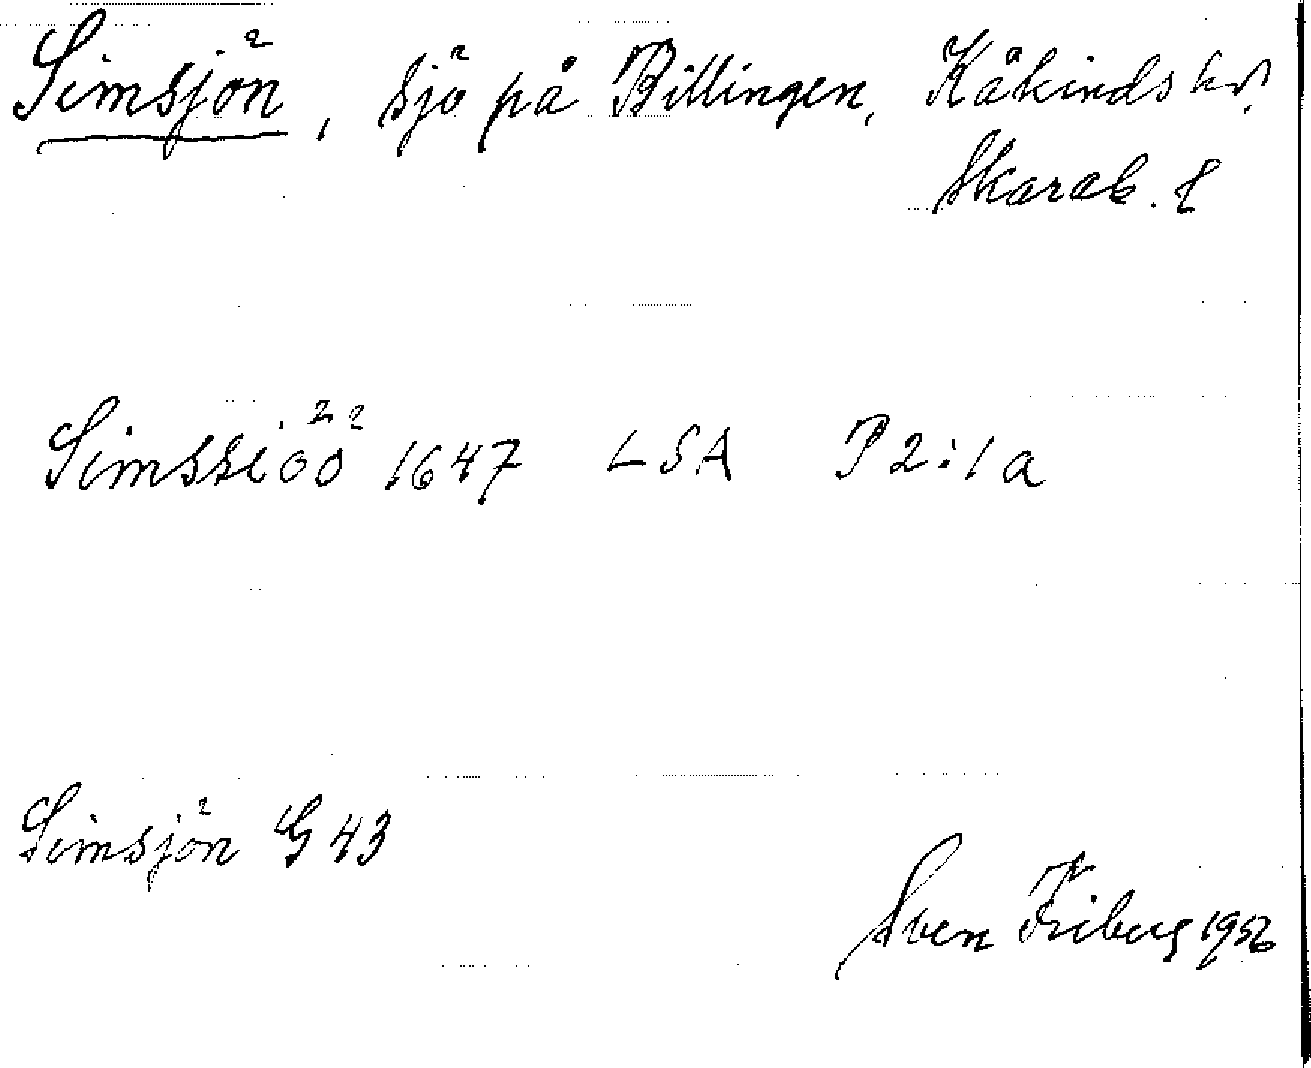 Simsjön, sjö på Billingen, Kåkinds hd.
Skarab. l
Simssiöö 1647 LSA P2:1a
Simsjön G 43
Sven Friberg 1956